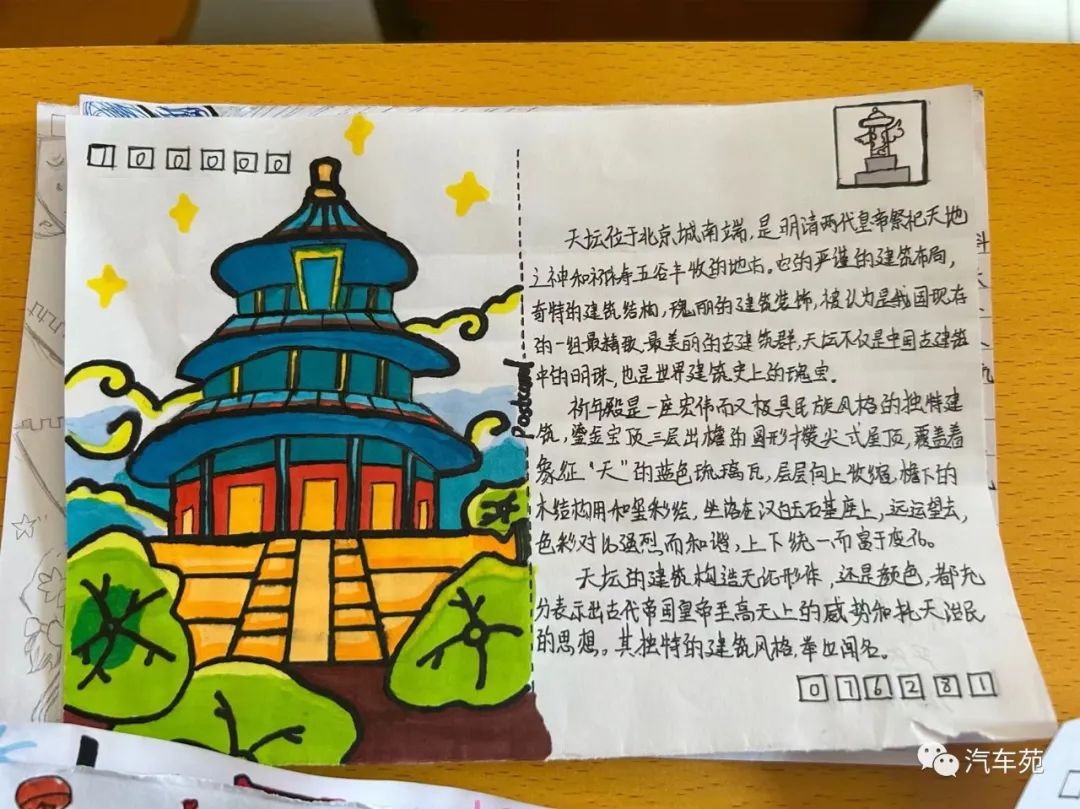 100000
Postcard
天坛位于北京城南端,是明清两代皇帝祭祀天地
之神和祈祷五谷丰收的地方。它的严谨的建筑布局,
奇特的建筑结构,瑰丽的建筑装饰,被认为是我国现存
的一组最精致,最美丽的古建筑群,天坛不仅是中国古建筑
中的明珠,也是世界建筑史上的瑰宝。
祈年殿是一座宏伟而又极具民族风格的独特建
筑,鎏金宝顶三层出檐的圆形攒尖式屋顶,覆盖着
象征“天”的蓝色琉璃瓦,层层向上收缩,檐下的
木结构用和玺彩绘,坐落在汉白玉石基座上,远远望去,
色彩对比强烈而和谐,上下统一而富于变化。
天坛的建筑构造无论形体,还是颜色,都充
分表示出古代帝国皇帝至高无上的威势和托天治民
的思想。其独特的建筑风格,举世闻名。
076281
汽车苑